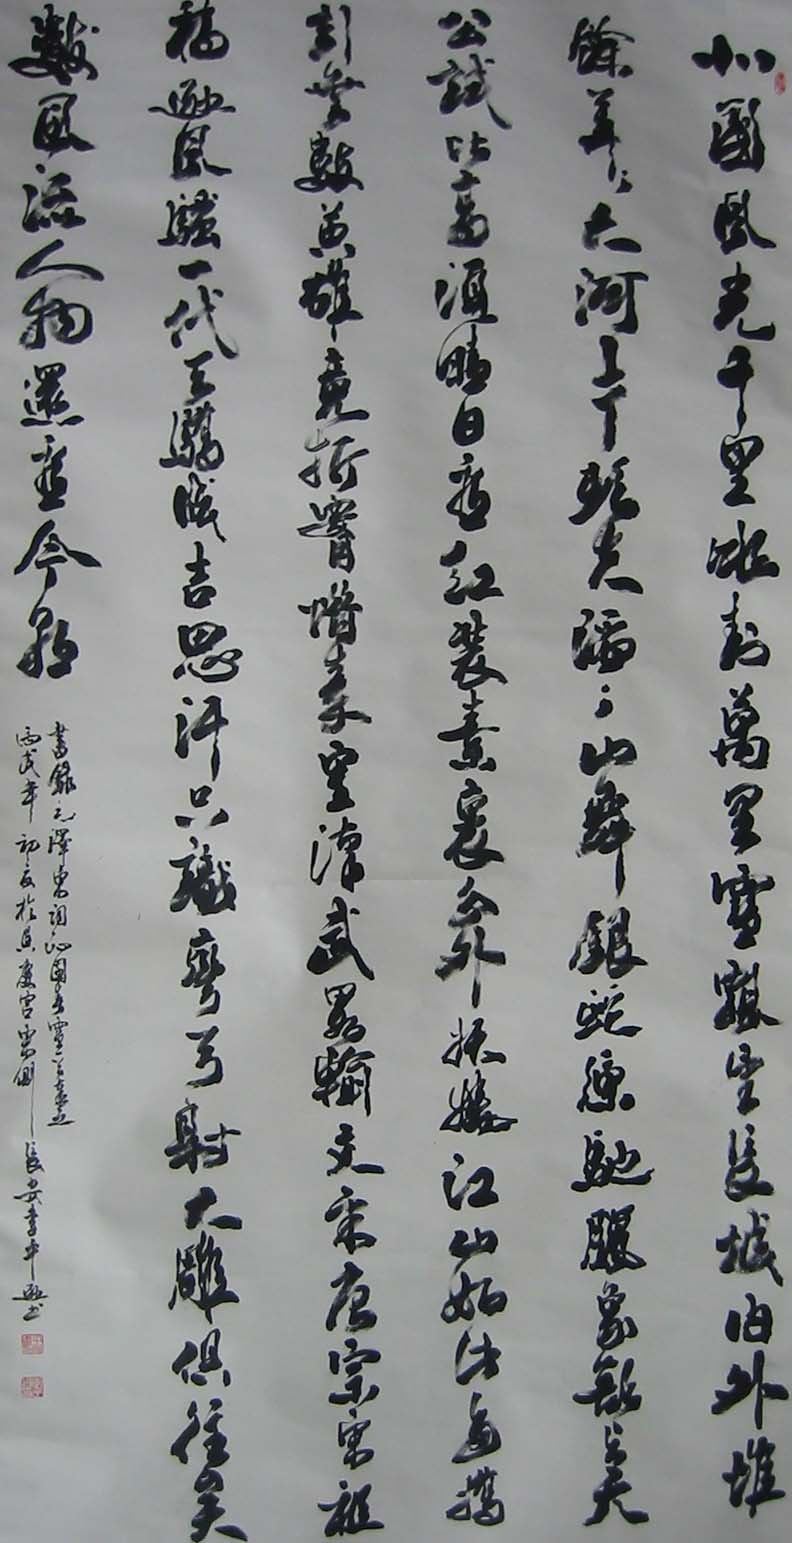 北國風光千里冰封萬里雪飄望長城内外惟
餘莽莽大河上下頓失滔滔山舞銀蛇原馳臘象欲与天
公試比高須晴日看紅裝素裹分外妖嬈江山如此多嬌
引無數英雄競折腰惜秦皇漢武略輸文采唐宗宋祖
稍遜風騷一代天驕成吉思汗只識彎弓射大雕俱往矣
數風流人物還看今朝
書録毛澤東詞沁園春雪
丙戌年初夏於興慶宮東側長安李中书